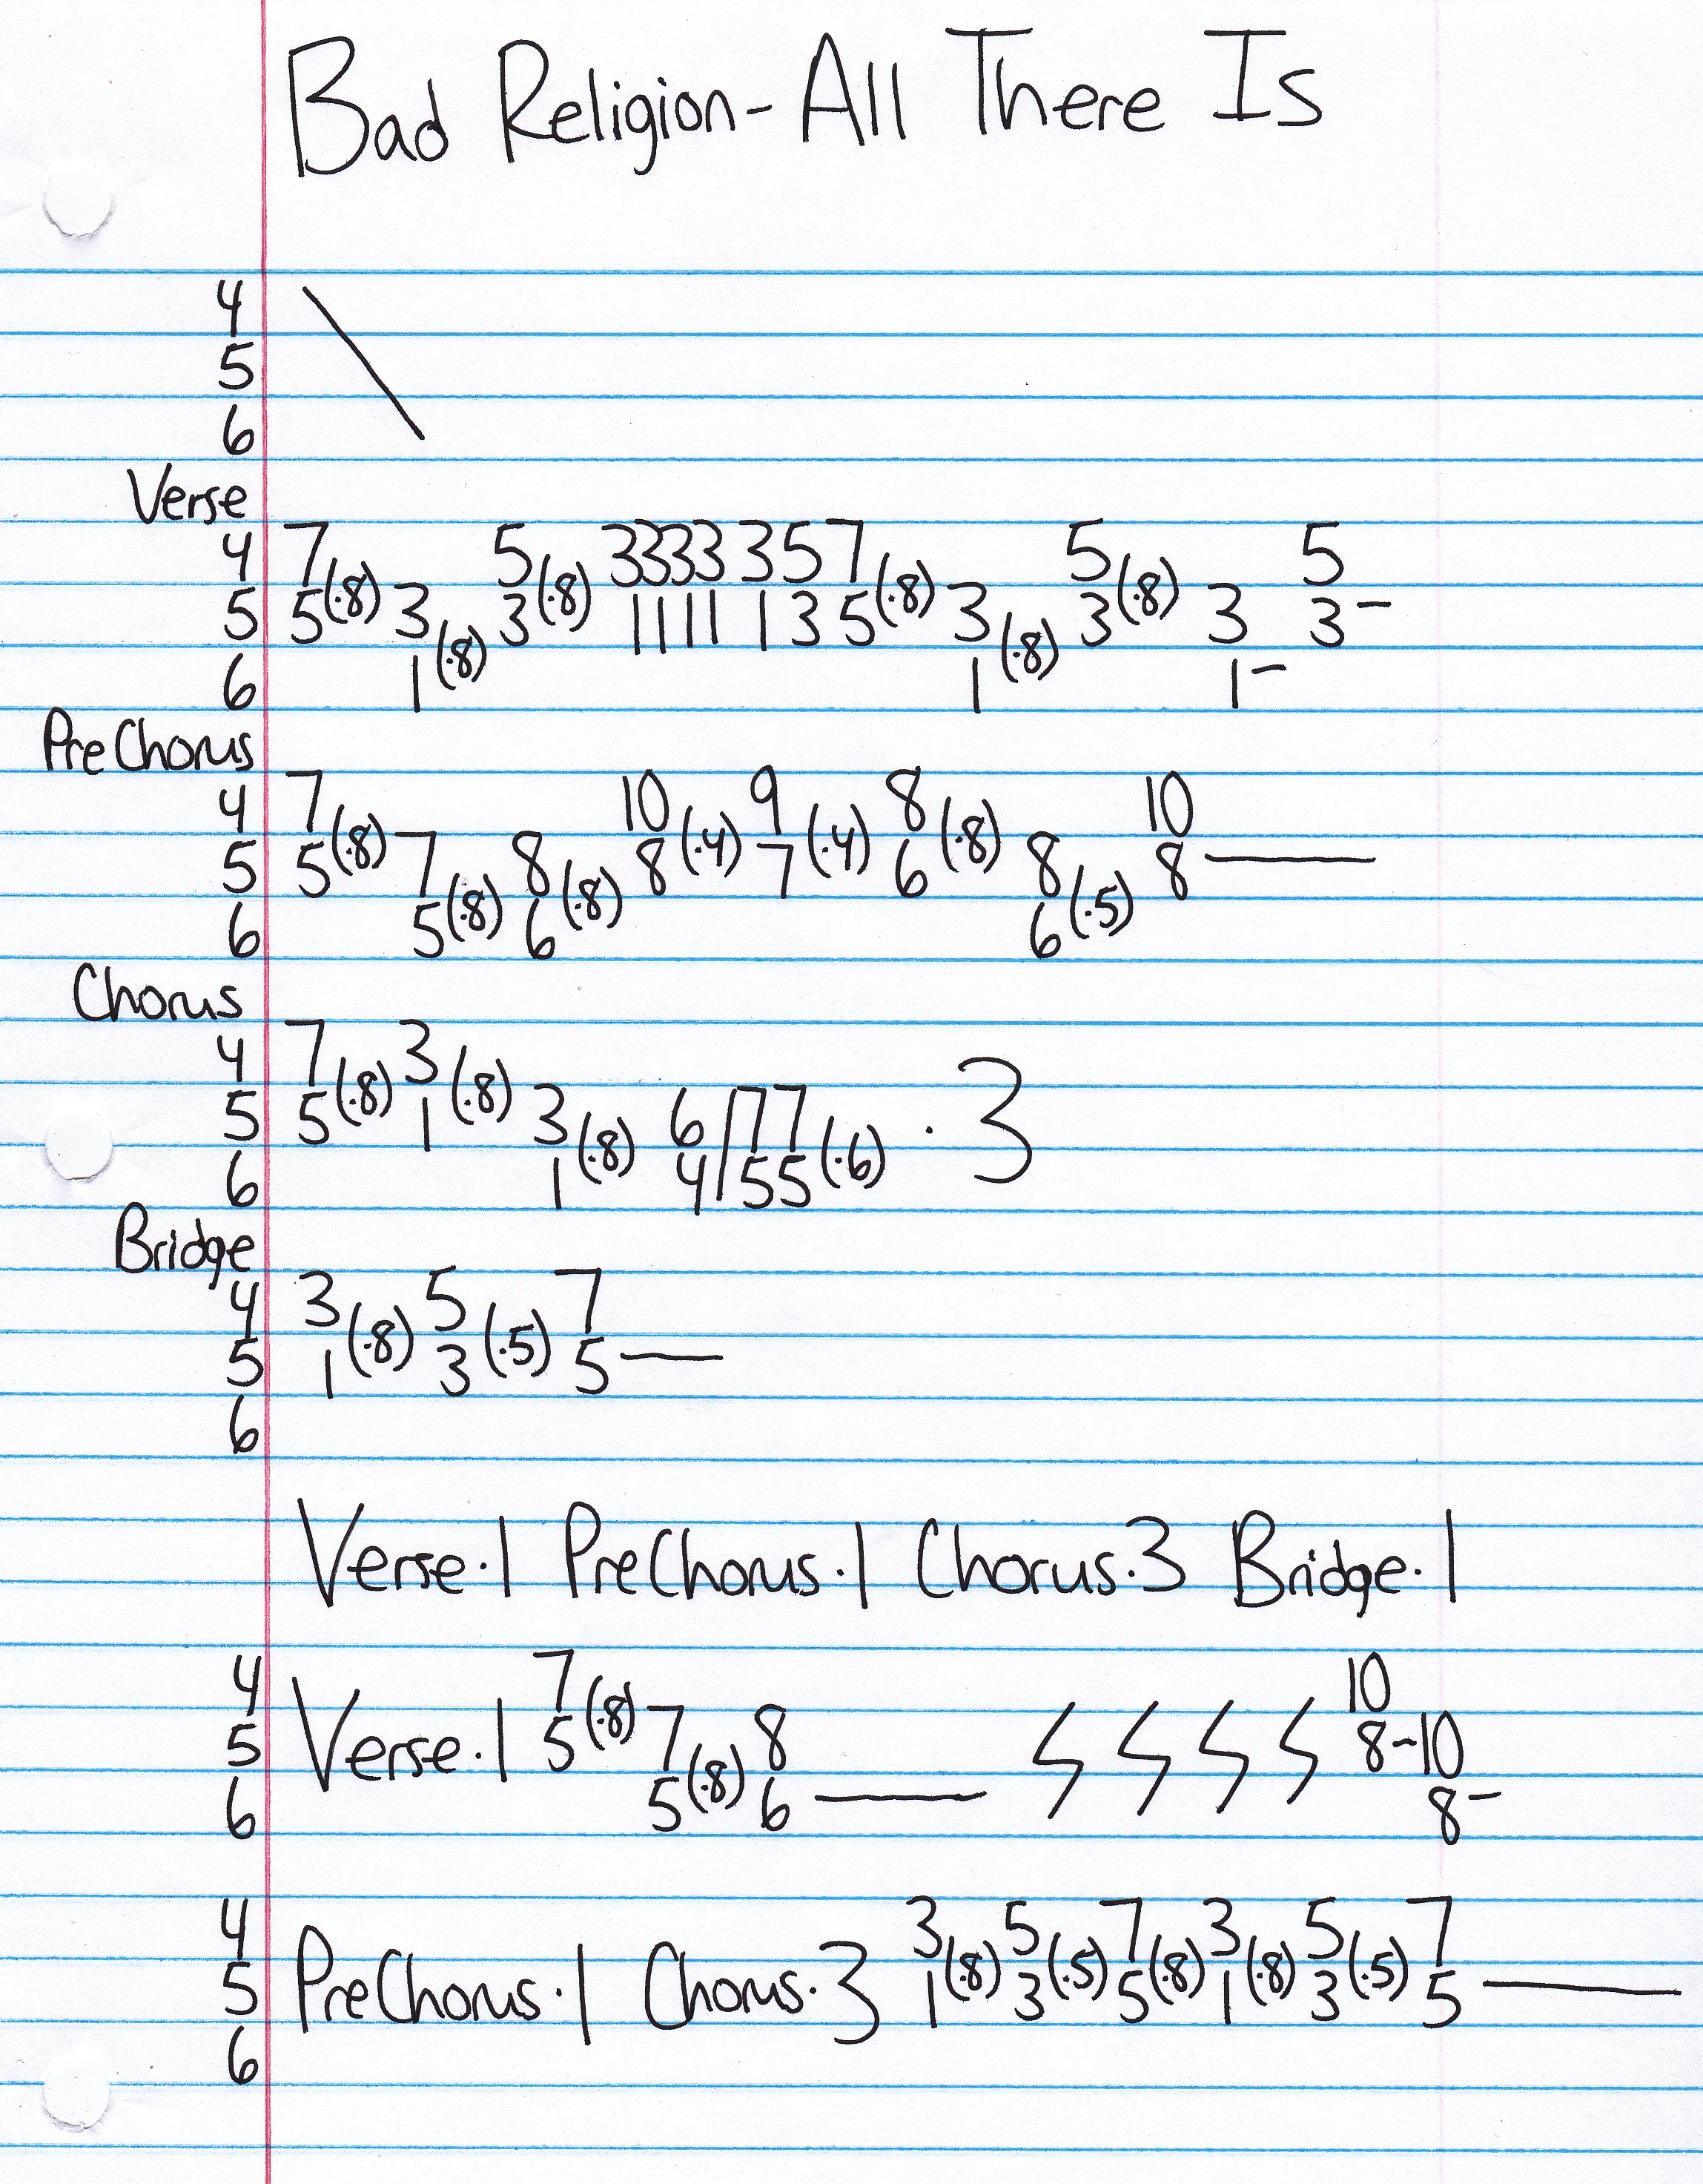 Bad Religion - All There Is
4 \
5
6
Verse
4 7 5 3333 357 5 5
5 5(·8) 3 3(·8) 1111 135(·8) 3 3(·8) 3 3–
6 1(·8) 1(·8) 1–
PreChorus
4 7 10 9 8 10
5 5(·8) 7 8 8(·4) 7(·4) 6(·8) 8 8—
6 5(·8) 6(·8) 6(·5)
Chorus
4 7 3
5 5(·8) 1(·8) 3 6/77 · 3
6 1(·8) 4/55(·6)
Bridge
4 3 5 7
5 1(·8) 3(·5) 5—
6
Verse·1 PreChorus·1 Chorus·3 Bridge·1
4 7 10
5 Verse·1 5(·8) 7 8 8–10
6 5(·8) 6— 8–
4 3 5 7 3 5 7
5 PreChorus·1 Chorus·3 1(·8) 3(·5) 5(·8) 1(·8) 3(·5) 5—
6